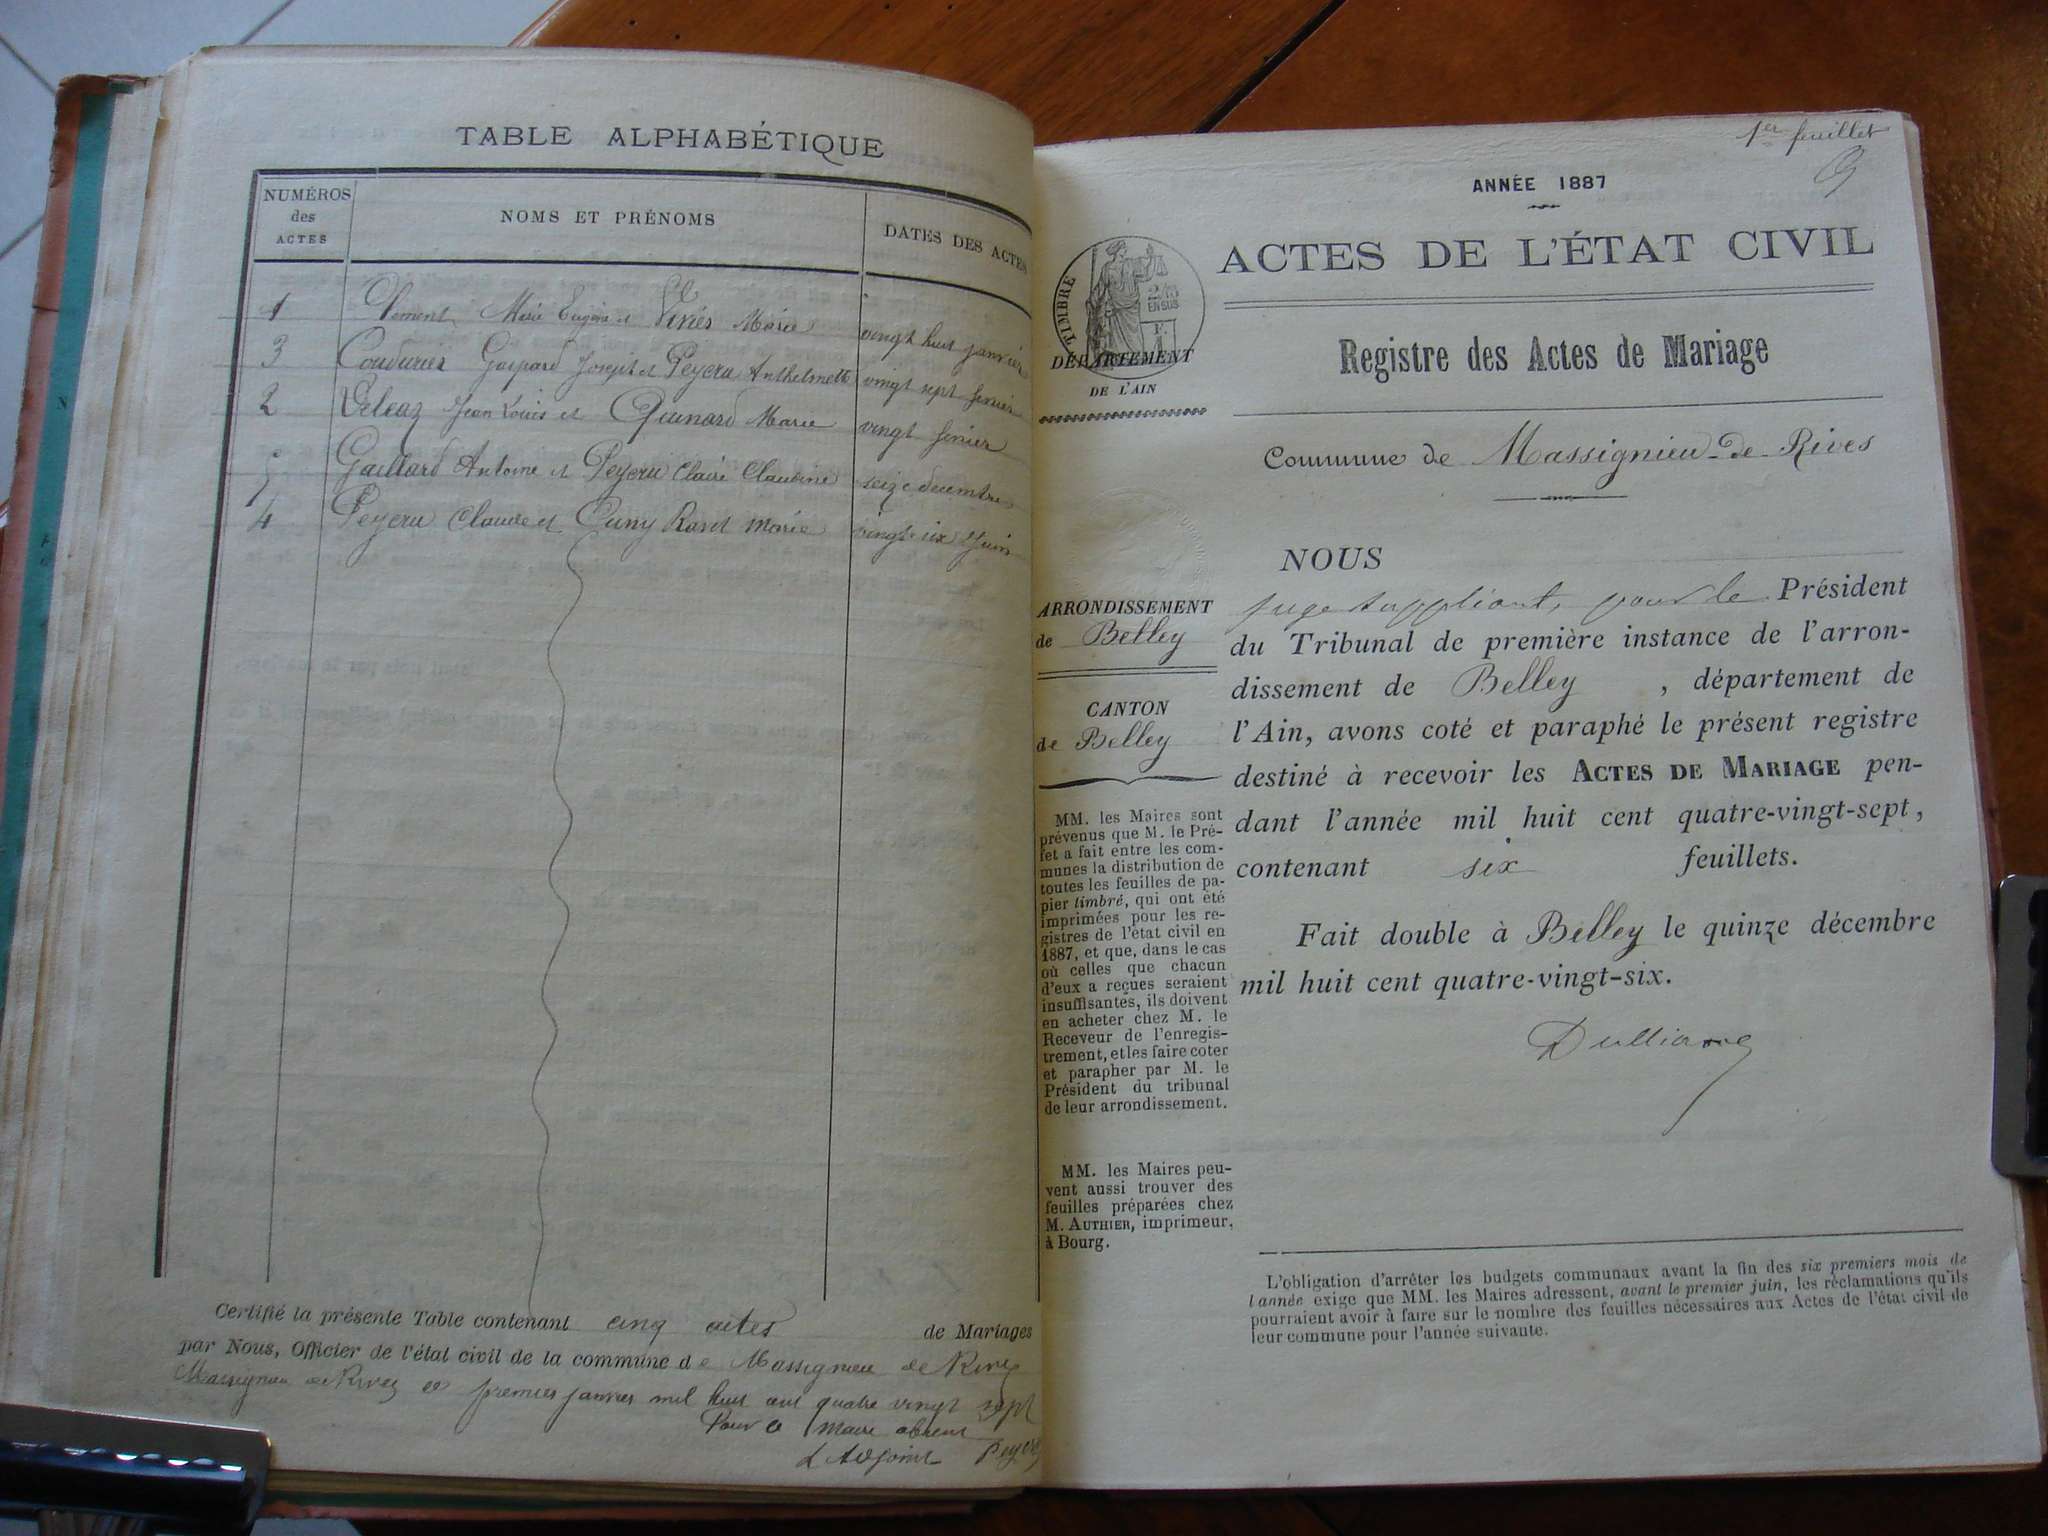 TABLE ALPHABÉTIQUE
NUMÉROS
des
ACTES
NOMS ET PRÉNOMS
DATES DES ACTES
1 Clément Marie Eugène et Marie vingt huit janvier
3 Couturier Gaspard Joseph et Peyeru Anthelmette vingt sept février
2 Veleaz Jean Louis et Quinard Marie vingt février
5 Gaillard Antoine et Peyeru Claire Claudine seize decembre
4 Peyeru Claude et Cuny Marie vingt six Juin
Certifié la présente Table contenant cinq actes de Mariages
par Nous, Officier de l'état civil de la commune de Massignieu de Rives
Massignieu de Rives le premier janvier mil huit cent quatre vingt sept
Pour le Maire absent
L'Adjoint
1er feuillet
ANNÉE 1887
ACTES DE L'ÉTAT CIVIL
TIMBRE
2/10
EN SUS
DÉPARTEMENT
DE L'AIN
Registre des Actes de Mariage
Commune de Massignieu-de-Rives
ARRONDISSEMENT
de Belley
CANTON
de Belley
MM. les Maires sont
prévenus que M. le Pré-
fet a fait entre les com-
munes la distribution de
toutes les feuilles de pa-
pier timbré, qui ont été
imprimées pour les re-
gistres de l'état civil en
1887, et que, dans le cas
où celles que chacun
d'eux a reçues seraient
insuffisantes, ils doivent
en acheter chez M. le
Receveur de l'enregis-
trement, et les faire coter
et parapher par M. le
Président du tribunal
de leur arrondissement.
MM. les Maires peu-
vent aussi trouver des
feuilles préparées chez
M. AUTHIER, imprimeur,
à Bourg.
NOUS
juge suppléant, pour le Président
du Tribunal de première instance de l'arron-
dissement de Belley , département de
l'Ain, avons coté et paraphé le présent registre
destiné à recevoir les ACTES DE MARIAGE pen-
dant l'année mil huit cent quatre-vingt-sept,
contenant six feuillets.
Fait double à Belley le quinze décembre
mil huit cent quatre-vingt-six.
L'obligation d'arrêter les budgets communaux avant la fin des six premiers mois de
l'année exige que MM. les Maires adressent, avant le premier juin, les réclamations qu'ils
pourraient avoir à faire sur le nombre des feuilles nécessaires aux Actes de l'état civil de
leur commune pour l'année suivante.